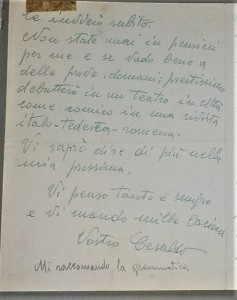 le invierò subito.
Non state mai in pensieri
per me e se vado bene a
delle prove, domani, prestissimo
debutterò in un teatro in città
come comico in una rivista
italo-tedesca-romena.
Vi saprò dire di più nella
mia prossima.
Vi penso tanto e sempre
e vi mando mille bacioni
Vostro
Mi raccomando la grammatica